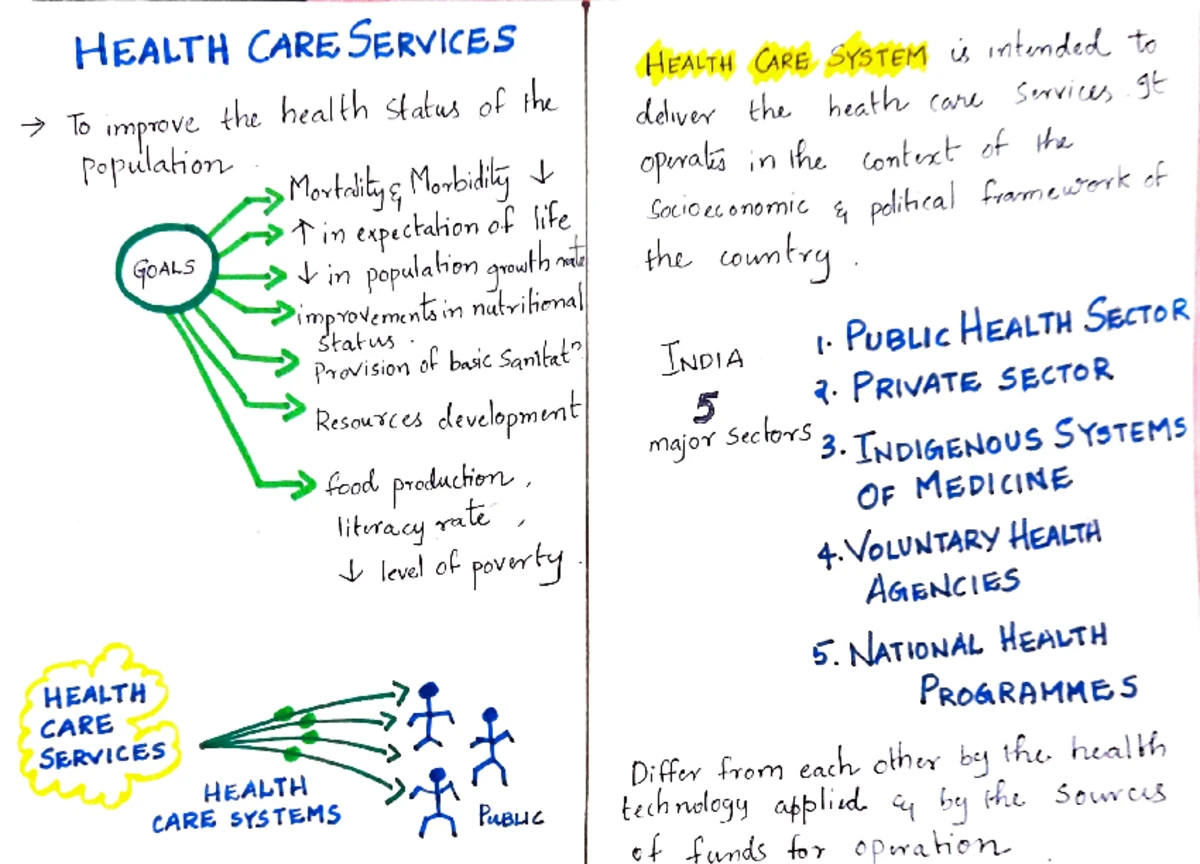 HEALTH CARE SERVICES
→ To improve the health status of the
population.
GOALS
Mortality & Morbidity ↓
↑ in expectation of life
↓ in population growth rate
improvements in nutritional
status.
Provision of basic Sanitatⁿ
Resources development
food production,
literacy rate,
↓ level of poverty.
HEALTH
CARE
SERVICES
HEALTH
CARE SYSTEMS
PUBLIC
HEALTH CARE SYSTEM is intended to
deliver the heath care services. It
operates in the context of the
Socioeconomic & political framework of
the country.
INDIA
5
major sectors
1. PUBLIC HEALTH SECTOR
2. PRIVATE SECTOR
3. INDIGENOUS SYSTEMS
OF MEDICINE
4. VOLUNTARY HEALTH
AGENCIES
5. NATIONAL HEALTH
PROGRAMMES
Differ from each other by the health
technology applied & by the sources
of funds for operation